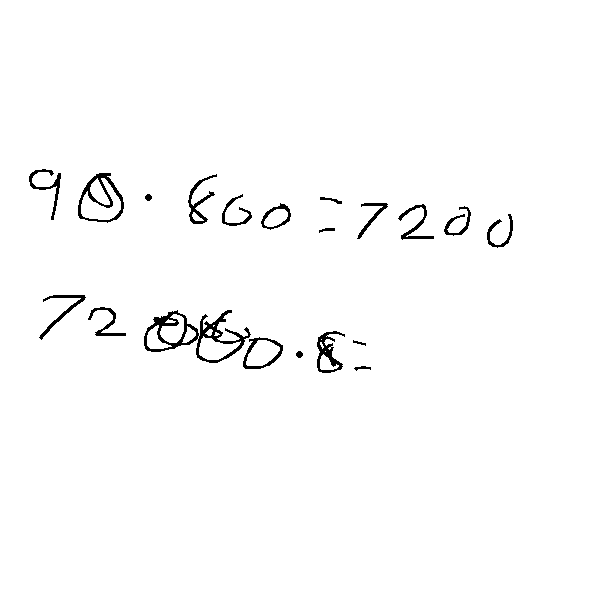 90 · 800 = 7200
72000 · 8 =